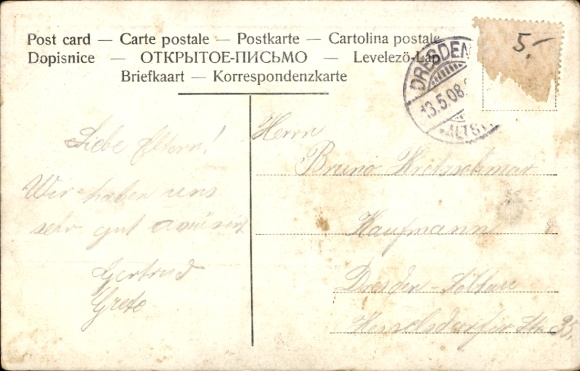 Post card — Carte postale — Postkarte — Cartolina postale
Dopisnice — ОТКРЫТОЕ-ПИСЬМО — Levelező-Lap
Briefkaart — Korrespondenzkarte
5,-
DRESDEN
13.5.08.
ALTST
Liebe Eltern!
Wir haben uns
sehr gut amüsirt
Gertrud
Grete
Herrn
Bruno Kretzschmar
Kaufmann
Dresden - Löbtau
Kesselsdorfer Str.